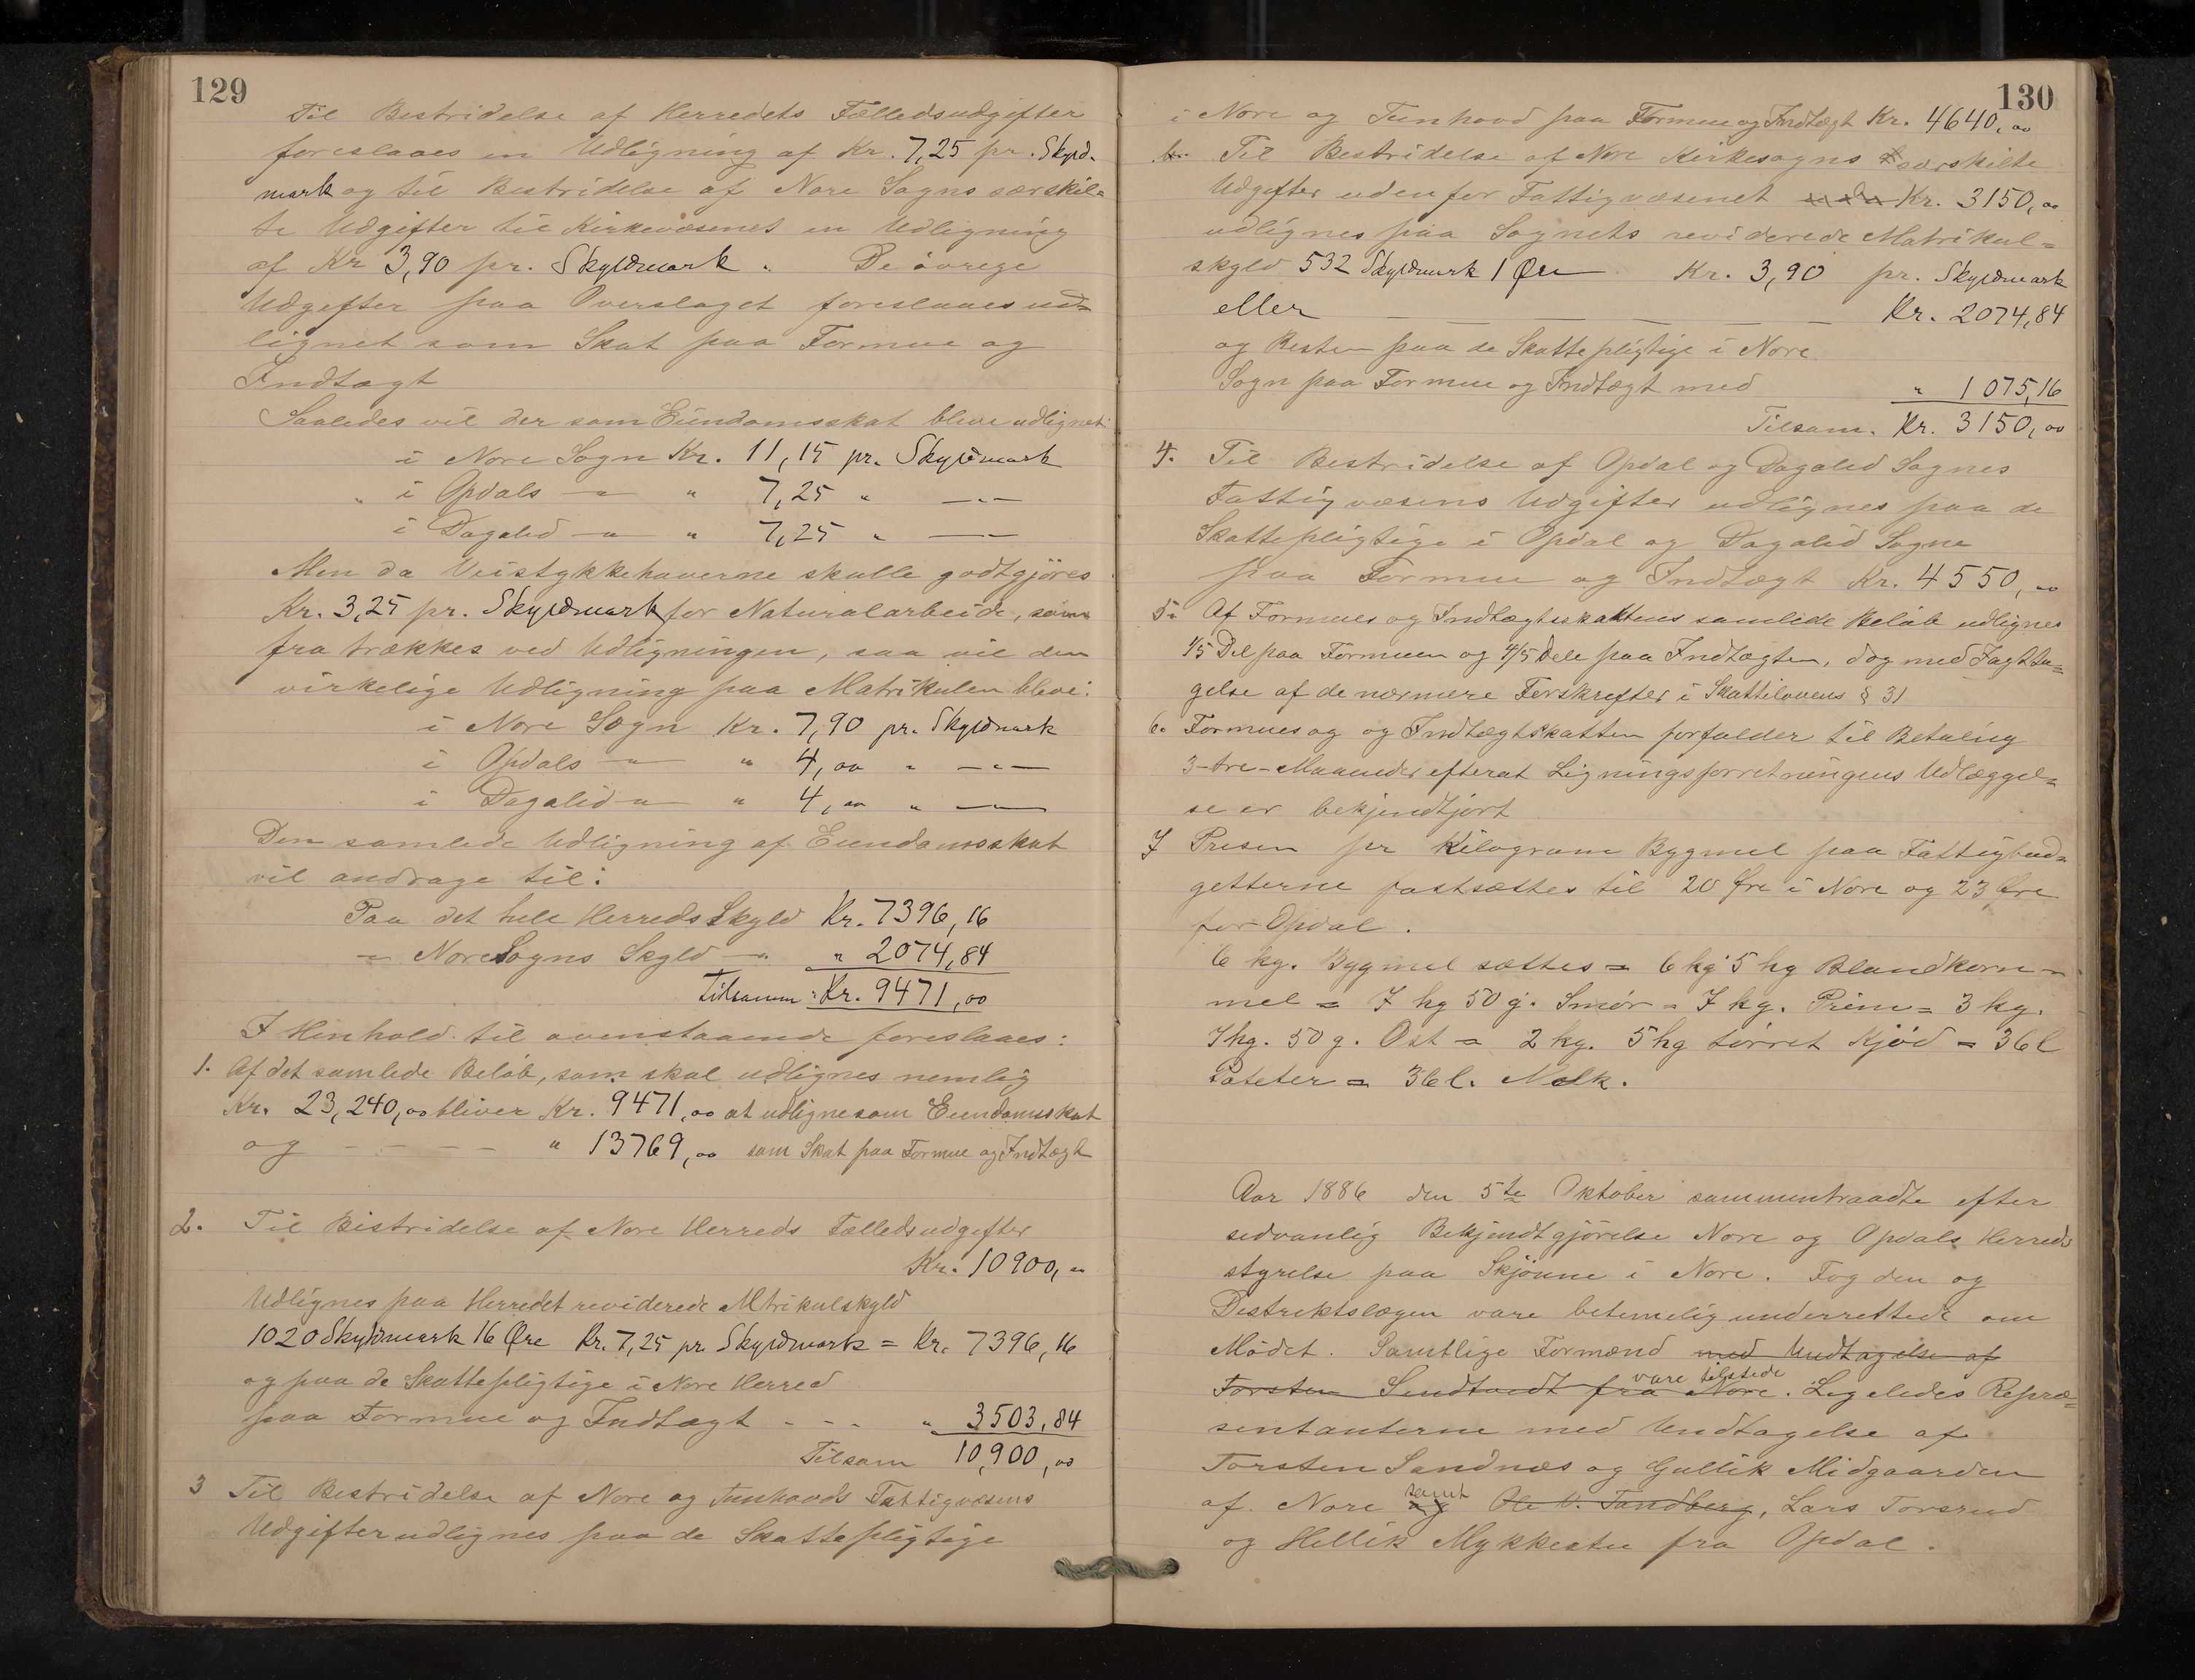 129
Til Bestridelse af Herredets Fælledsudgifter
foreslaaes en Udligning af Kr. 7,25 pr. Skyld-
mark og til Bestridelse af Nore Sogns særskil=
te Udgifter til Kirkevæsenet en Udligning
af Kr 3,90 pr. Skyldmark. De øvrige
Udgifter paa Overslaget foreslaaes ud=
lignet som Skat paa Formue og
Indtægt
Saaledes vil der som Eiendomsskat blive udlignet
i Nore Sogn Kr. 11,15 pr. Skyldmark
" i Opdals — " — " 7,25 " — " —
i Dagalid — " — " 7,25 " — " —
Men da Veistykkehaverne skulle godtgjøres
Kr. 3,25 pr. Skyldmark for Naturalarbeide, som
fratrækkes ved Udligningen, saa vil den
virkelige Udligning paa Matrikulen blive:
i Nore Sogn Kr. 7,90 pr. Skyldmark
i Opdals — " — " 4,00 " — " —
i Dagalid — " — " 4,00 " — " —
Den samlede Udligning af Eiendomsskat
vil andrage til:
Paa det hele Herreds Skyld Kr. 7396,16
— " — Nore Sogns Skyld — " — " 2074,84
Tilsamm: Kr. 9471,00
I Henhold til ovenstaaende foreslaaes:
1. Af det samlede Beløb, som skal udlignes nemlig
Kr. 23,240,00 bliver Kr. 9471,00 at udligne som Eiendomsskat
og - - - - " 13769,00 som Skat paa Formue og Indtægt
2. Til Bistridelse af Nore Herreds Fælledsudgifter
Kr. 10900,00
Udlignes paa Herredet reviderede Mtrikulskyld
1020 Skyldmark 16 Øre Kr. 7,25 pr. Skyldmark = Kr. 7396,16
og paa de Skattepligtige i Nore Herred
paa Formue og Indtægt - - - " 3503,84
Tilsam 10,900,00
3 Til Bestridelse af Nore og Tunhovds Fattigvæsens
Udgifter udlignes paa de Skattepligtige
130
i Nore og Tunhovd paa Formue og Indtægt Kr. 4640,00
b. Til Bestridelse af Nore Kirkesogns særskilte
Udgifter udenfor Fattigvæsenet Kr. 3150,00
udlignes paa Sognets reviderede Matrikul=
skyld 532 Skyldmark 1 Øre Kr. 3,90 pr. Skyldmark
eller — — — — — — Kr. 2074,84
og Resten paa de Skattepligtige i Nore
Sogn paa Formue og Indtægt med " 1075,16
Tilsam. Kr. 3150,00
4. Til Bestridelse af Opdal og Dagalid Sognes
Fattigvæsens Udgifter udlignes paa de
Skattepligtige i Opdal og Dagalid Sogne
paa Formue og Indtægt Kr. 4550,00
5. Af Formues og Indtægtsskattens samlede Beløb udlignes
1/5 Del paa Formuen og 4/5 Dele paa Indtægten, dog med Iagtta=
gelse af de nærmere Forskrefter i Skattelovens § 31
6. Formues og og Indtægtskatten forfalder til Betaling
3 - tre - Maaneder efterat Ligningsforretningens Udlæggel=
se er bekjendtjort
7 Prisen pr Kilogram Bygmel paa Fattigbud=
getterne fastsættes til 20 Øre i Nore og 23 Øre
for Opdal.
6 kg. Bygmel sættes = 6 kg 5 hg Blandkorn=
mel = 7 hg 50 g. Smør = 7 kg. Prim = 3 kg.
7 hg. 50 g. Ost = 2 kg. 5 hg tørret Kjød = 36 l
Poteter = 36 l. Melk.
Aar 1886 den 5te Oktober sammentraadte efter
sedvanlig Bekjendtgjørelse Nore og Opdals Herreds
styrelse paa Skjønne i Nore. Fogden og
Destriktslægen vare betimelig underrettede om
Mødet. Samtlige Formænd med Undtagelse af
vare tilstede
Torsten Sendtvedt fra Nore. Ligeledes Repræ=
sentanterne med Undtagelse af
Torsten Sandnæs og Gullik Midgaarden
af Nore samt og Ole O. Tandberg, Lars Torsrud
og Hellik Mykkestu fra Opdal.